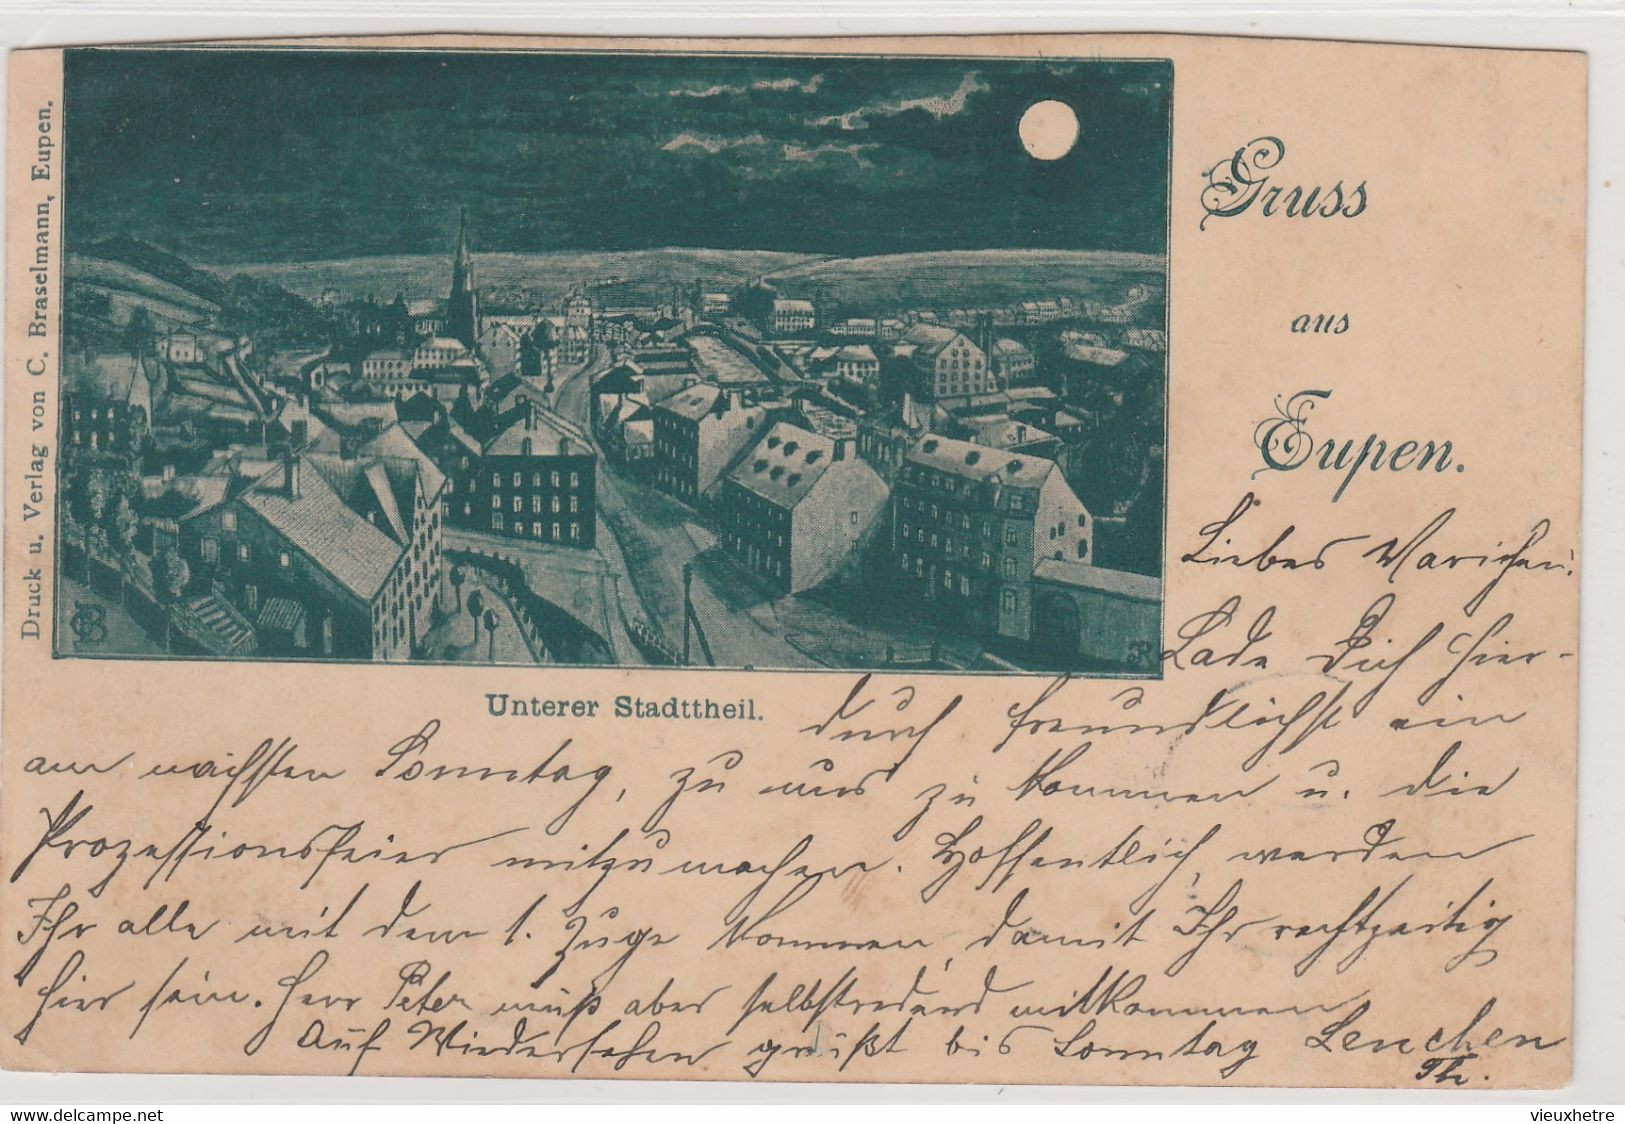 Druck u. Verlag von C. Braselmann, Eupen.
Gruss
aus
Eupen.
Unterer Stadttheil.
Liebes Mariechen!
Lade Dich hier-
durch freundlichst ein
am nächsten Sonntag, zu uns zu kommen u. die
Prozessionsfeier mitzumachen. Hoffentlich werden
Ihr alle mit dem 1. Zuge kommen, damit Ihr rechtzeitig
hier sein. Herr Peter muß aber selbstredend mitkommen
Auf Wiedersehen grüßt bis Sonntag Lenchen
Th.
CB
JR
delcampe.net
vieuxhetre